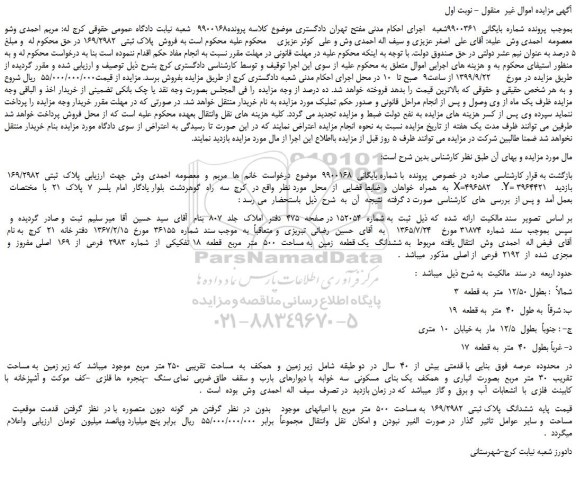 آگهی مزایده اموال غیر منقول - نوبت اول
بموجب پرونده شماره بایگانی 9900361شعبه اجرای احکام مدنی مفتح تهران دادگستری موضوع کلاسه پرونده9900168 شعبه نیابت دادگاه عمومی حقوقی کرج له: مریم احمدی وشو
معصومه احمدی وش علیه: آقای علی اصغر عزیزی و سیف اله احمدی وش و علی کوثر عزیزی محکوم علیه محکوم است به فروش پلاک ثبتی 169/2982 در حق محکوم له و مبلغ
5 درصد به عنوان نیم عشر دولتی در حق صندوق دولت. با توجه به اینکه محکوم علیه در مهلت قانونی در مهلت مقرر نسبت به انجام مفاد حکم اقدام ننموده است بنا به درخواست محکوم له و به
منظور استیفای محکوم به و هزینه های اجرایی اموال متعلق به محکوم علیه از سوی این اجرا توقیف و توسط کارشناسی دادگستری کرج بشرح ذیل توصیف و ارزیابی شده و مقرر گردیده از
طریق مزایده در مورخ 1399/9/22 از ساعت9 صبح تا 10 در محل اجرای احکام مدنی شعبه دادگستری کرج از طریق مزایده بفروش برسد. مزایده از قیمت55/000/000/000 ریال شروع
و به هر شخص حقیقی و حقوقی که بالاترین قیمت را بدهد فروخته خواهد شد. ده درصد از وجه مزایده را فی المجلس بصورت وجه نقد یا چک بانکی تضمینی از خریدار اخذ و الباقی وجه
مزایده ظرف یک ماه از وی وصول و پس از انجام مراحل قانونی و صدور حکم تملیک مورد مزایده به نام خریدار منتقل خواهد شد. در صورتی که در مهلت مقرر خریدار وجه مزایده را پرداخت
ننماید سپرده وی پس از کسر هزینه های مزایده به نفع دولت ضبط و مزایده تجدید می گردد. کلیه هزینه های نقل وانتقال بعهده محکوم علیه است که از محل فروش پرداخت خواهد شد
طرفین می توانند ظرف مدت یک هفته از تاریخ مزایده نسبت به نحوه انجام مزایده اعتراض نمایند که در این صورت تا رسیدگی به اعتراض از سوی دادگاه مورد مزایده بنام خریدار منتقل
نخواهد شد ضمنا طالبین شرکت در مزایده می توانند ظرف 5 روز قبل از مزایده بااطلاع این اجرا از مال مورد مزایده بازدید نمایند.
مال مورد مزایده و بهای آن طبق نظر کارشناسی بدین شرح است:
بازگشت به قرار کارشناسی صادره در خصوص پرونده با شماره بایگانی 9900168 موضوع درخواست خانم ها مریم و معصومه احمدی وش جهت ارزیابی پلاک ثبتی 169/2982
بازدید Y= 3964421. X=496582 به همراه خواهان و ضابط قضایی از محل مورد نظر واقع در کرج سه راه گوهردشت بلوار یادگار امام پلسر 7 پلاک 21 با مختصات
بعمل آمد و پس از بررسی های کارشناسی صورت گرفته نتیجه آن به شرح ذیل باستحضار می رسد:
بر اساس تصویر سند مالکیت ارائه شده که ذیل ثبت به شماره 152054 در صفحه 475 دفتر املاک جلد 807 بنام آقای سید حسین آقا میر سلیم ثبت و صادر گردیده و
سپس بموجب سند شماره 31874 مورخ 1365/7/24 به آقای حسین رضائی تبریزی و متعاقباً به موجب سند شماره 36155 مورخ 1367/2/15 دفتر خانه 21 کرج به نام
آقای فیض اله احمدی وش انتقال یافته مربوط به ششدانگ یک قطعه زمین به مساحت 500 متر مربع قطعه 18 تفکیکی از شماره 2983 فرعی از 169 اصلی مفروز و
مجزی شده از 2192 فرعی از اصلی مذکور میباشد .
حدود اربعه در سند مالکیت به شرح ذیل میباشد :
شمالاً : بطول 12/50 متر به قطعه 3
ب: شرقاً به طول 40 متر به قطعه 19
ج- : جنوباً بطول 12/5 متر به خیابان 10 متری
د- غرباً بطول 40 متر به قطعه 17
در محدوده عرصه فوق بنایی با قدمتی بیش از 40 سال در دو طبقه شامل زیر زمین و همکف به مساحت تقریبی 250 متر مربع موجود میباشد که زیر زمین به مساحت
تقریب 30 متر مربع بصورت انباری و همکف یک بنای مسکونی سه خوابه با دیوارهای باربر و سقف طاق ضربی نمای سنگ -پنجره ها فلزی -کف موکت و آشپزخانه با
کابینت فلزی با انشعابات آب و برق و گاز میباشد که در زمان بازدید در تصرف سیف اله احمدی وش بوده است .
قیمت پایه ششدانگ پلاک ثبتی 169/2982 به مساحت 500 متر مربع با اعیانهای موجود بدون در نظر گرفتن هر گونه دیون متصوره با در نظر گرفتن قدمت موقعیت
مساحت و سایر عوامل تاثیر گذار در صورت الغیر نبودن و امکان نقل وانتقال مجموعاً برابر 55/000/000/000 ریال برابر پنج میلیارد وپانصد میلیون تومان ارزیابی واعلام
میگردد .
دادورز شعبه نیابت کرج-شهرستانی
ParsNamadData
پایگاه اطلاع رسانی مناقصه و مزایده
021-88349670-5